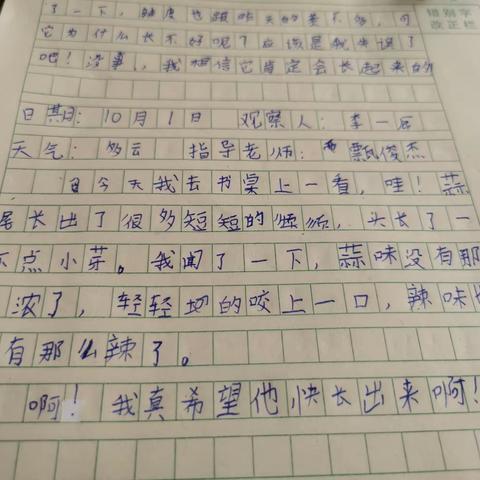 错别字
改正栏
了一下，跟昨天的差不多，可
它为什么长不好呢？应该是我失误了
吧！没事，我相信它肯定会长起来的
日期：10月1日 观察人：李一
天气：多云 指导老师：甄俊杰
今天我去书桌上一看，哇！蒜
尾长出了很多短短的须须，头长了一
点小芽。我闻了一下，蒜味没有那
浓了，轻轻地的咬上一口，辣味
有那么辣了。
啊！我真希望他快长出来啊！